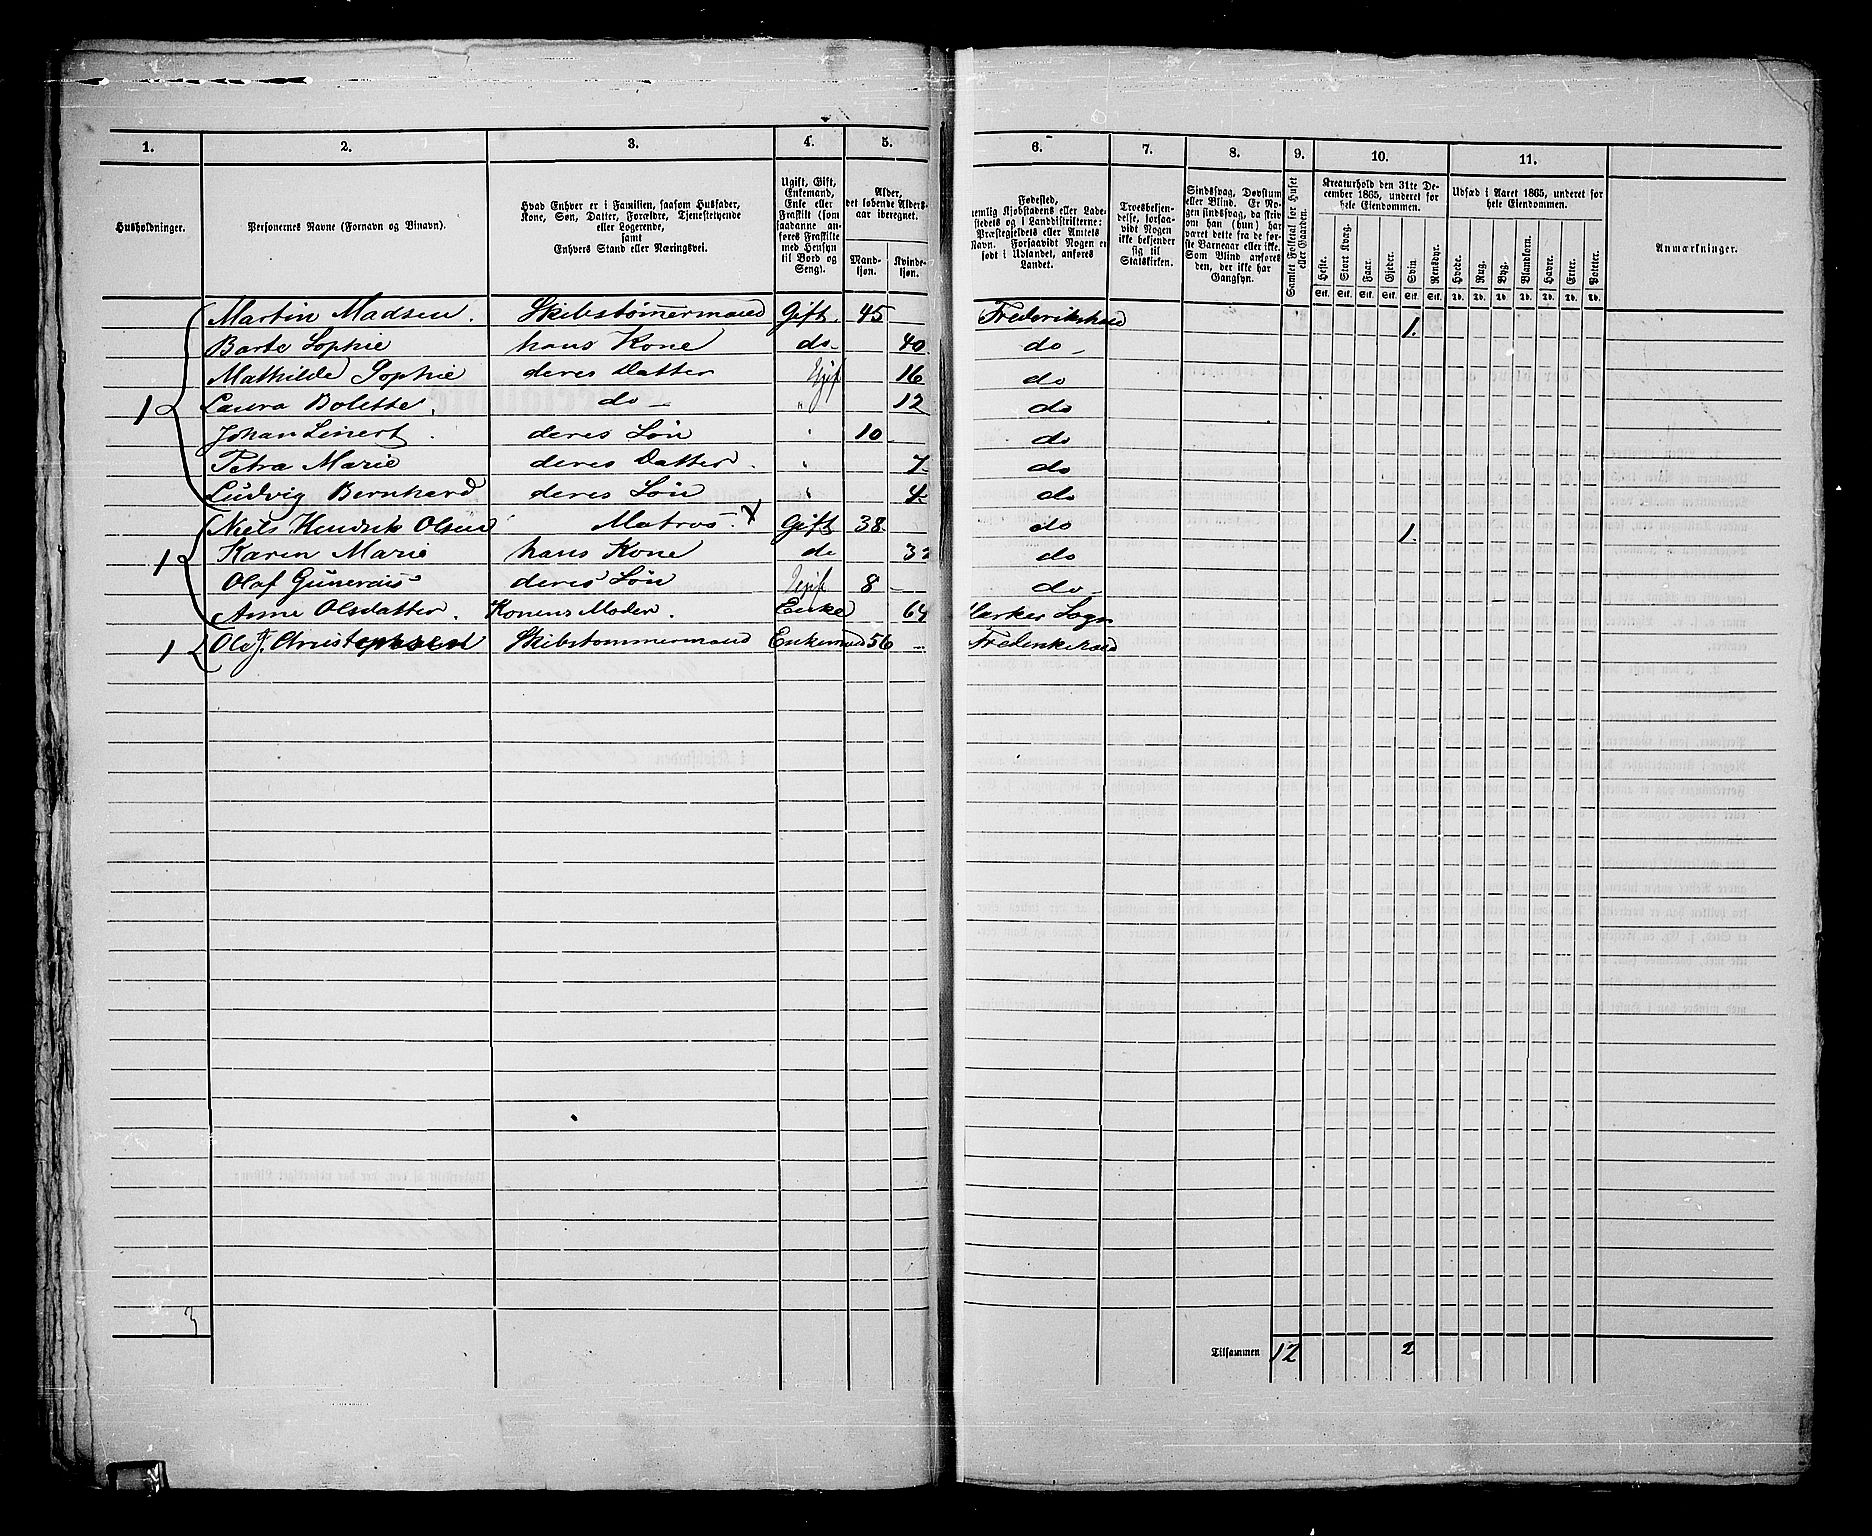 1. 2. 3. 4. 5. 6. 7. 8. 9. 10. 11.
Husholdninger.
Personernes Navne (Fornavn og Binavn).
Hvad Enhver er i Familien, saasom Husfader, Kone, Søn, Datter, Forældre, Tjenestetyende eller Logerende, samt Enhvers Stand eller Næringsvei.
Ugift, Gift, Enkemand, Enke eller Fraskilt (som saadanne anføres Fraskilte med Hensyn til Bord og Seng).
Alder, det løbende Alders-aar iberegnet.
Mand-kjøn. Kvinde-kjøn.
Fødested, nemlig Kjøbstadens eller Ladestedets og i Landdistrikterne: Præstegjeldets eller Amtets Navn. Forsaavidt Nogen er født i Udlandet, anføres Landet.
Troesbekjendelse, forsaavidt Nogen ikke bekjender sig til Statskirken.
Sindssvag, Døvstum eller Blind. Er Nogen sindssvag, da skriv om han (hun) har været dette fra de første Barneaar eller ikke. Som Blind anføres den, der ikke har Gangsyn.
Samlet Folketal for Huset eller Gaarden.
Kreaturhold den 31te December 1865, underet for hele Eiendommen.
Heste. Stort Kvæg. Faar. Gjeder. Svin. Rensdyr.
Stk. Stk. Stk. Stk. Stk. Stk.
Udsæd i Aaret 1865, underet for hele Eiendommen.
Hvede. Rug. Byg. Blandkorn. Havre. Erter. Poteter.
Td. Td. Td. Td. Td. Td. Td.
Anmærkninger.
Martin Madsen. Skibstømermand Gift. 45 Frederikshald 1.
Barte Sophie hans Kone do- 40 do-
Mathilde Sophie deres Datter Ugif 16 do
1 Laura Bolette. do- " 12 do
Johan Linert. deres Søn " 10 do
Petra Marie deres Datter. " 7 do
Ludvig Bernhard deres Søn " 4 do
Niels Hendrik Olsen Matros. X Gift 38 do 1.
1 Karen Marie hans Kone do 32 do
Olaf deres Søn Ugif 8 do-
Anne Olsdatter. Konens Moder. Enke 64 Marker Sogn
1 Ole J. Christophersen Skibstommermand Enkemand 56 Frederikshald
3
Tilsammen 12 2